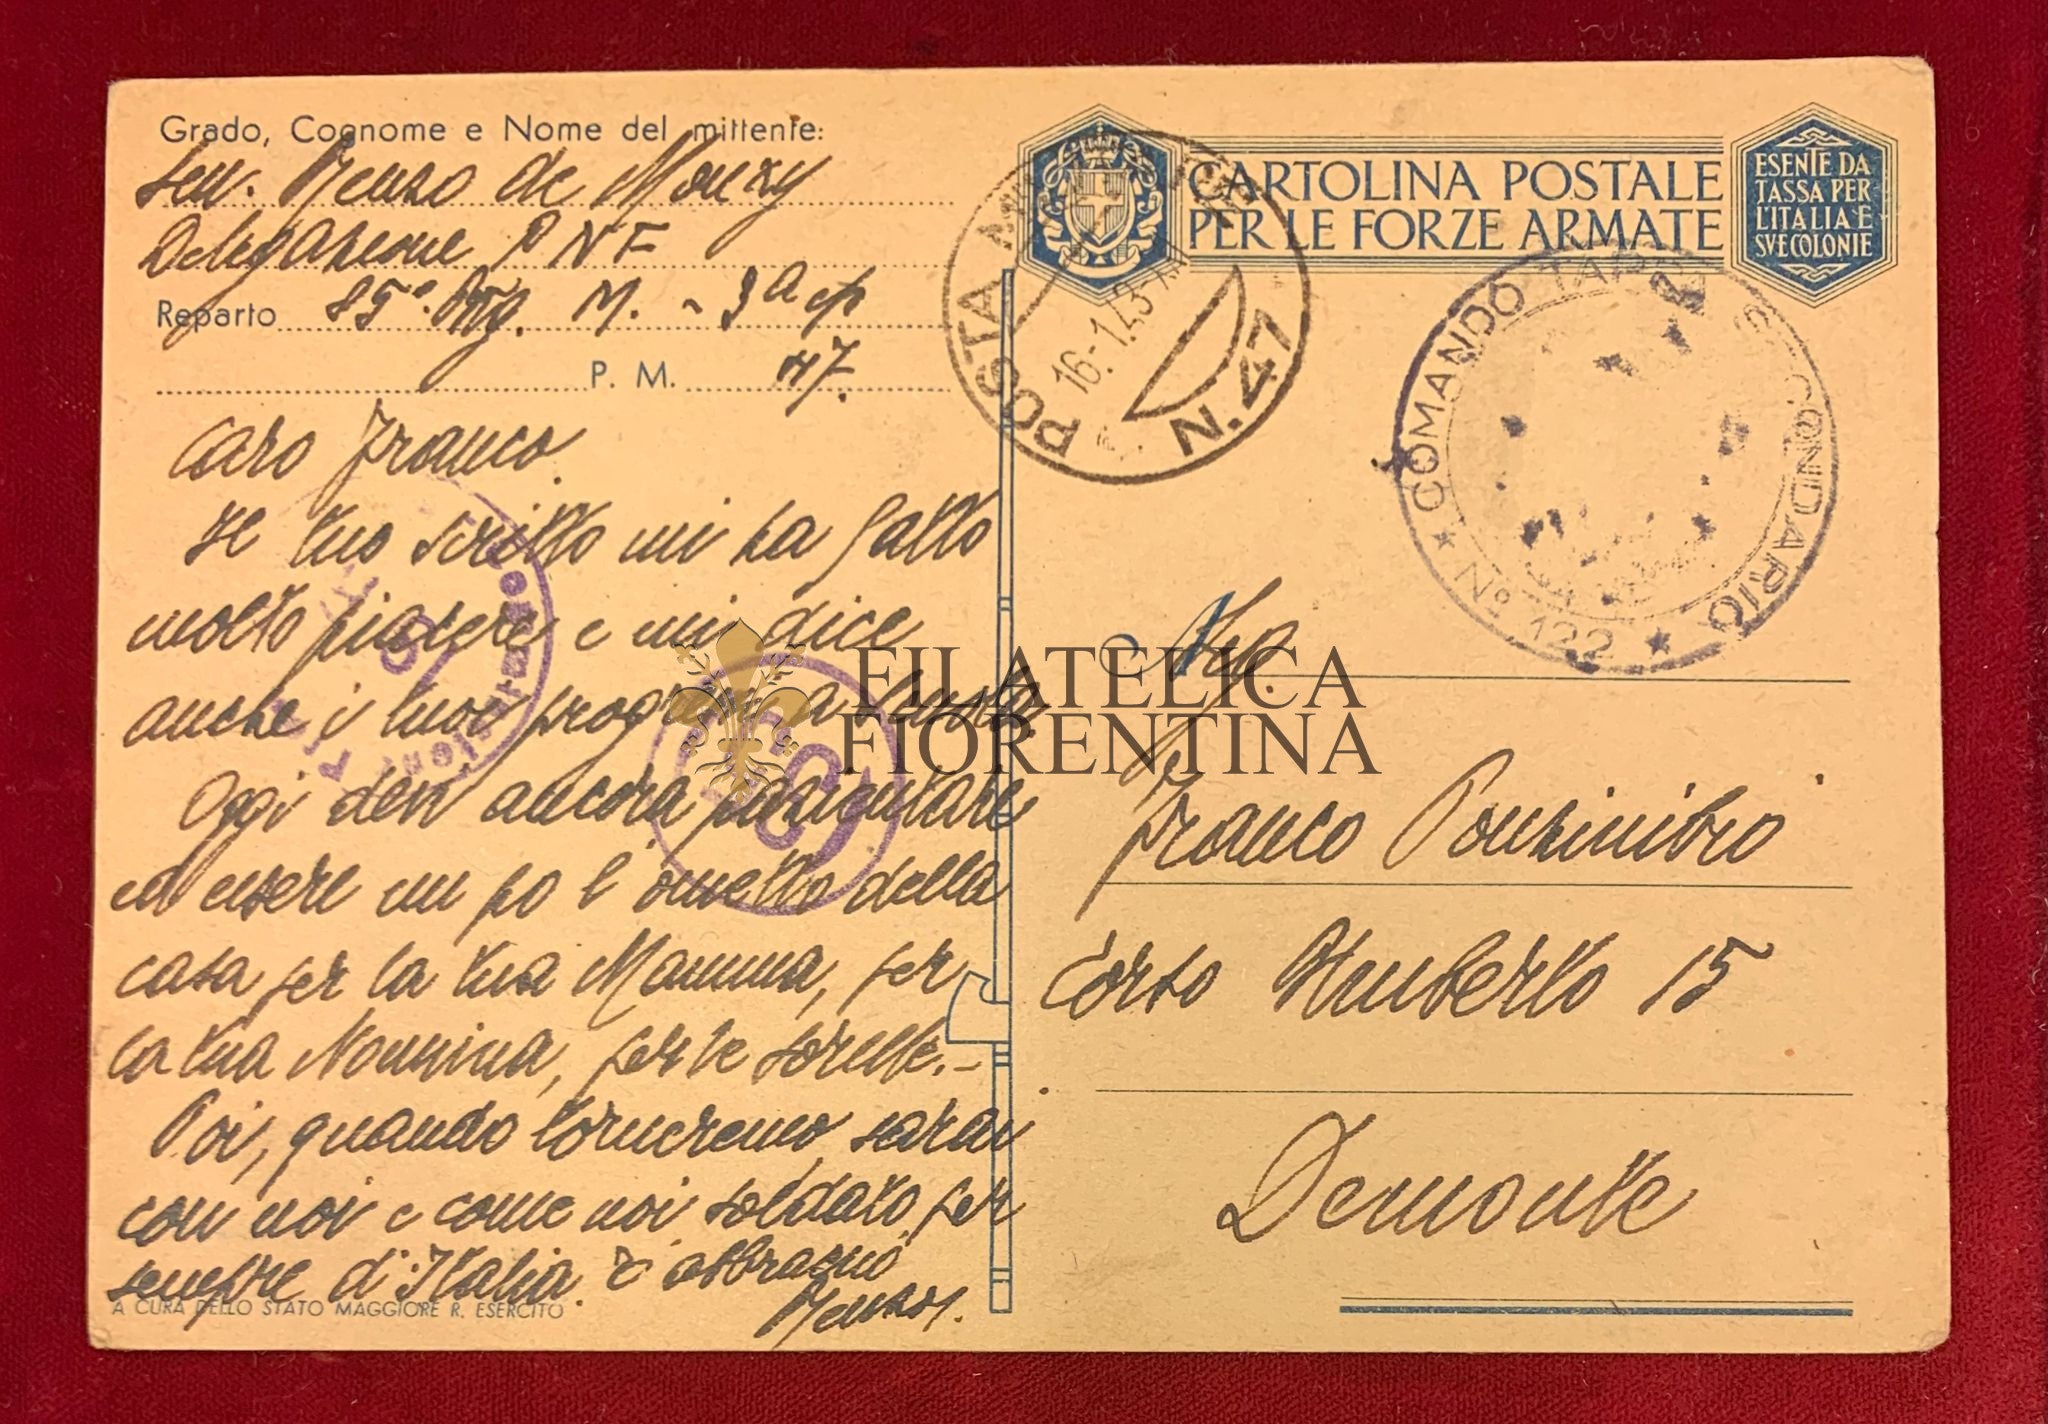 Grado, Cognome e Nome del mittente:
Renzo de Monzy
Delegazione P N F
Reparto 85° M. - 3a
P. M. 47.
Caro Franco.
Il tuo scritto mi ha fatto
molto piacere e mi dice
anche i tuoi
Oggi devi ancora
ed essere un po l'ometto della
casa per la tua Mamma, per
la tua Nonnina, per le sorelle.-
Poi, quando torneremo, sarai
con noi e come noi soldato per
sempre d'Italia. Ti abbraccio
A CURA DELLO STATO MAGGIORE R. ESERCITO
CARTOLINA POSTALE
PER LE FORZE ARMATE
ESENTE DA
TASSA PER
L'ITALIA E
SVE COLONIE
POSTA
16-1.43
N. 47
COMANDO TAPPA SECONDARIO
No 122
FILATELICA
FIORENTINA
Franco Ponzinibio
Corso Umberto 15
Demonte